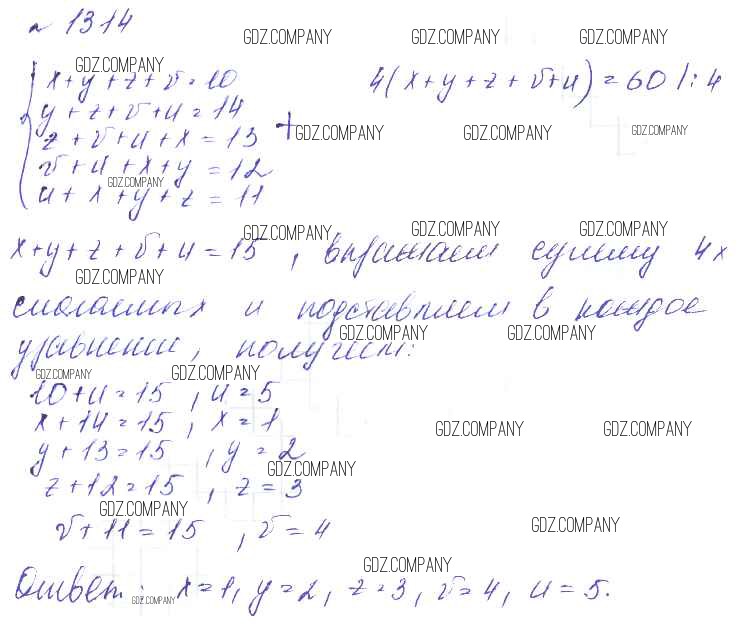 № 1314
GDZ.COMPANY GDZ.COMPANY GDZ.COMPANY
GDZ.COMPANY
x+y+z+v=10 4(x+y+z+v+u)=60 /:4
y+z+v+u=14
z+v+u+x=13 + GDZ.COMPANY GDZ.COMPANY GDZ.COMPANY
v+u+x+y=12
GDZ.COMPANY
u+x+y+z=11
GDZ.COMPANY GDZ.COMPANY GDZ.COMPANY
x+y+z+v+u=15, выражаем сумму 4х
GDZ.COMPANY
слагаемых и подставляем в каждое
GDZ.COMPANY GDZ.COMPANY
уравнении, получем:
GDZ.COMPANY GDZ.COMPANY
10+u=15, u=5
x+14=15, x=1
GDZ.COMPANY GDZ.COMPANY
y+13=15, y=2
GDZ.COMPANY
z+12=15, z=3
GDZ.COMPANY
v+11=15, v=4
GDZ.COMPANY
GDZ.COMPANY
Ответ: x=1, y=2, z=3, v=4, u=5.
GDZ.COMPANY